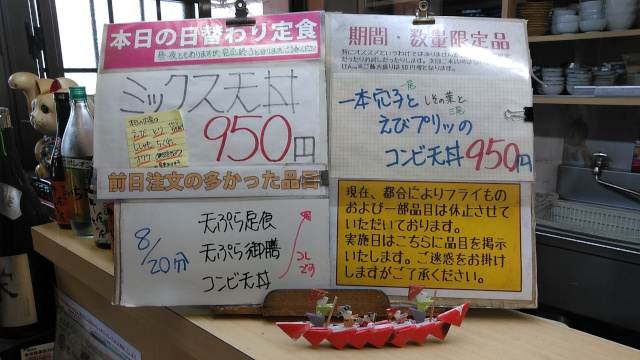 本日の日替わり定食
ミックス天丼
本日の内容は
えび、とり
ししゃも、ちくわ
950円
前日注文の多かった品目
8/20分
天ぷら定食
天ぷら御膳
コンビ天丼
コレです
期間・数量限定品
一本穴子と
しその葉と
えびプリッの
コンビ天丼 950円
現在、都合によりフライもの
および一部品目は休止させて
いただいております。
実施日はこちらに品目を掲示
いたします。ご迷惑をお掛け
しますがご了承ください。